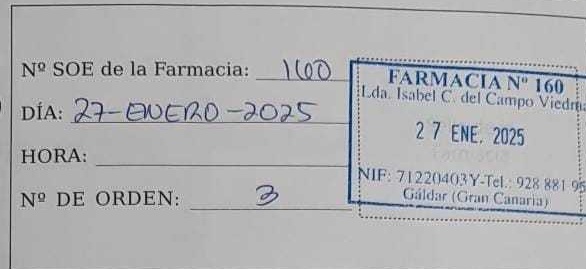 Nº SOE de la Farmacia: 160
DÍA: 27-ENERO-2025
HORA:
Nº DE ORDEN: 3
FARMACIA Nº 160
Lda. Isabel C. del Campo
27 ENE. 2025
NIF: 71220403Y-Tel.: 928 881
Gáldar (Gran Canaria)